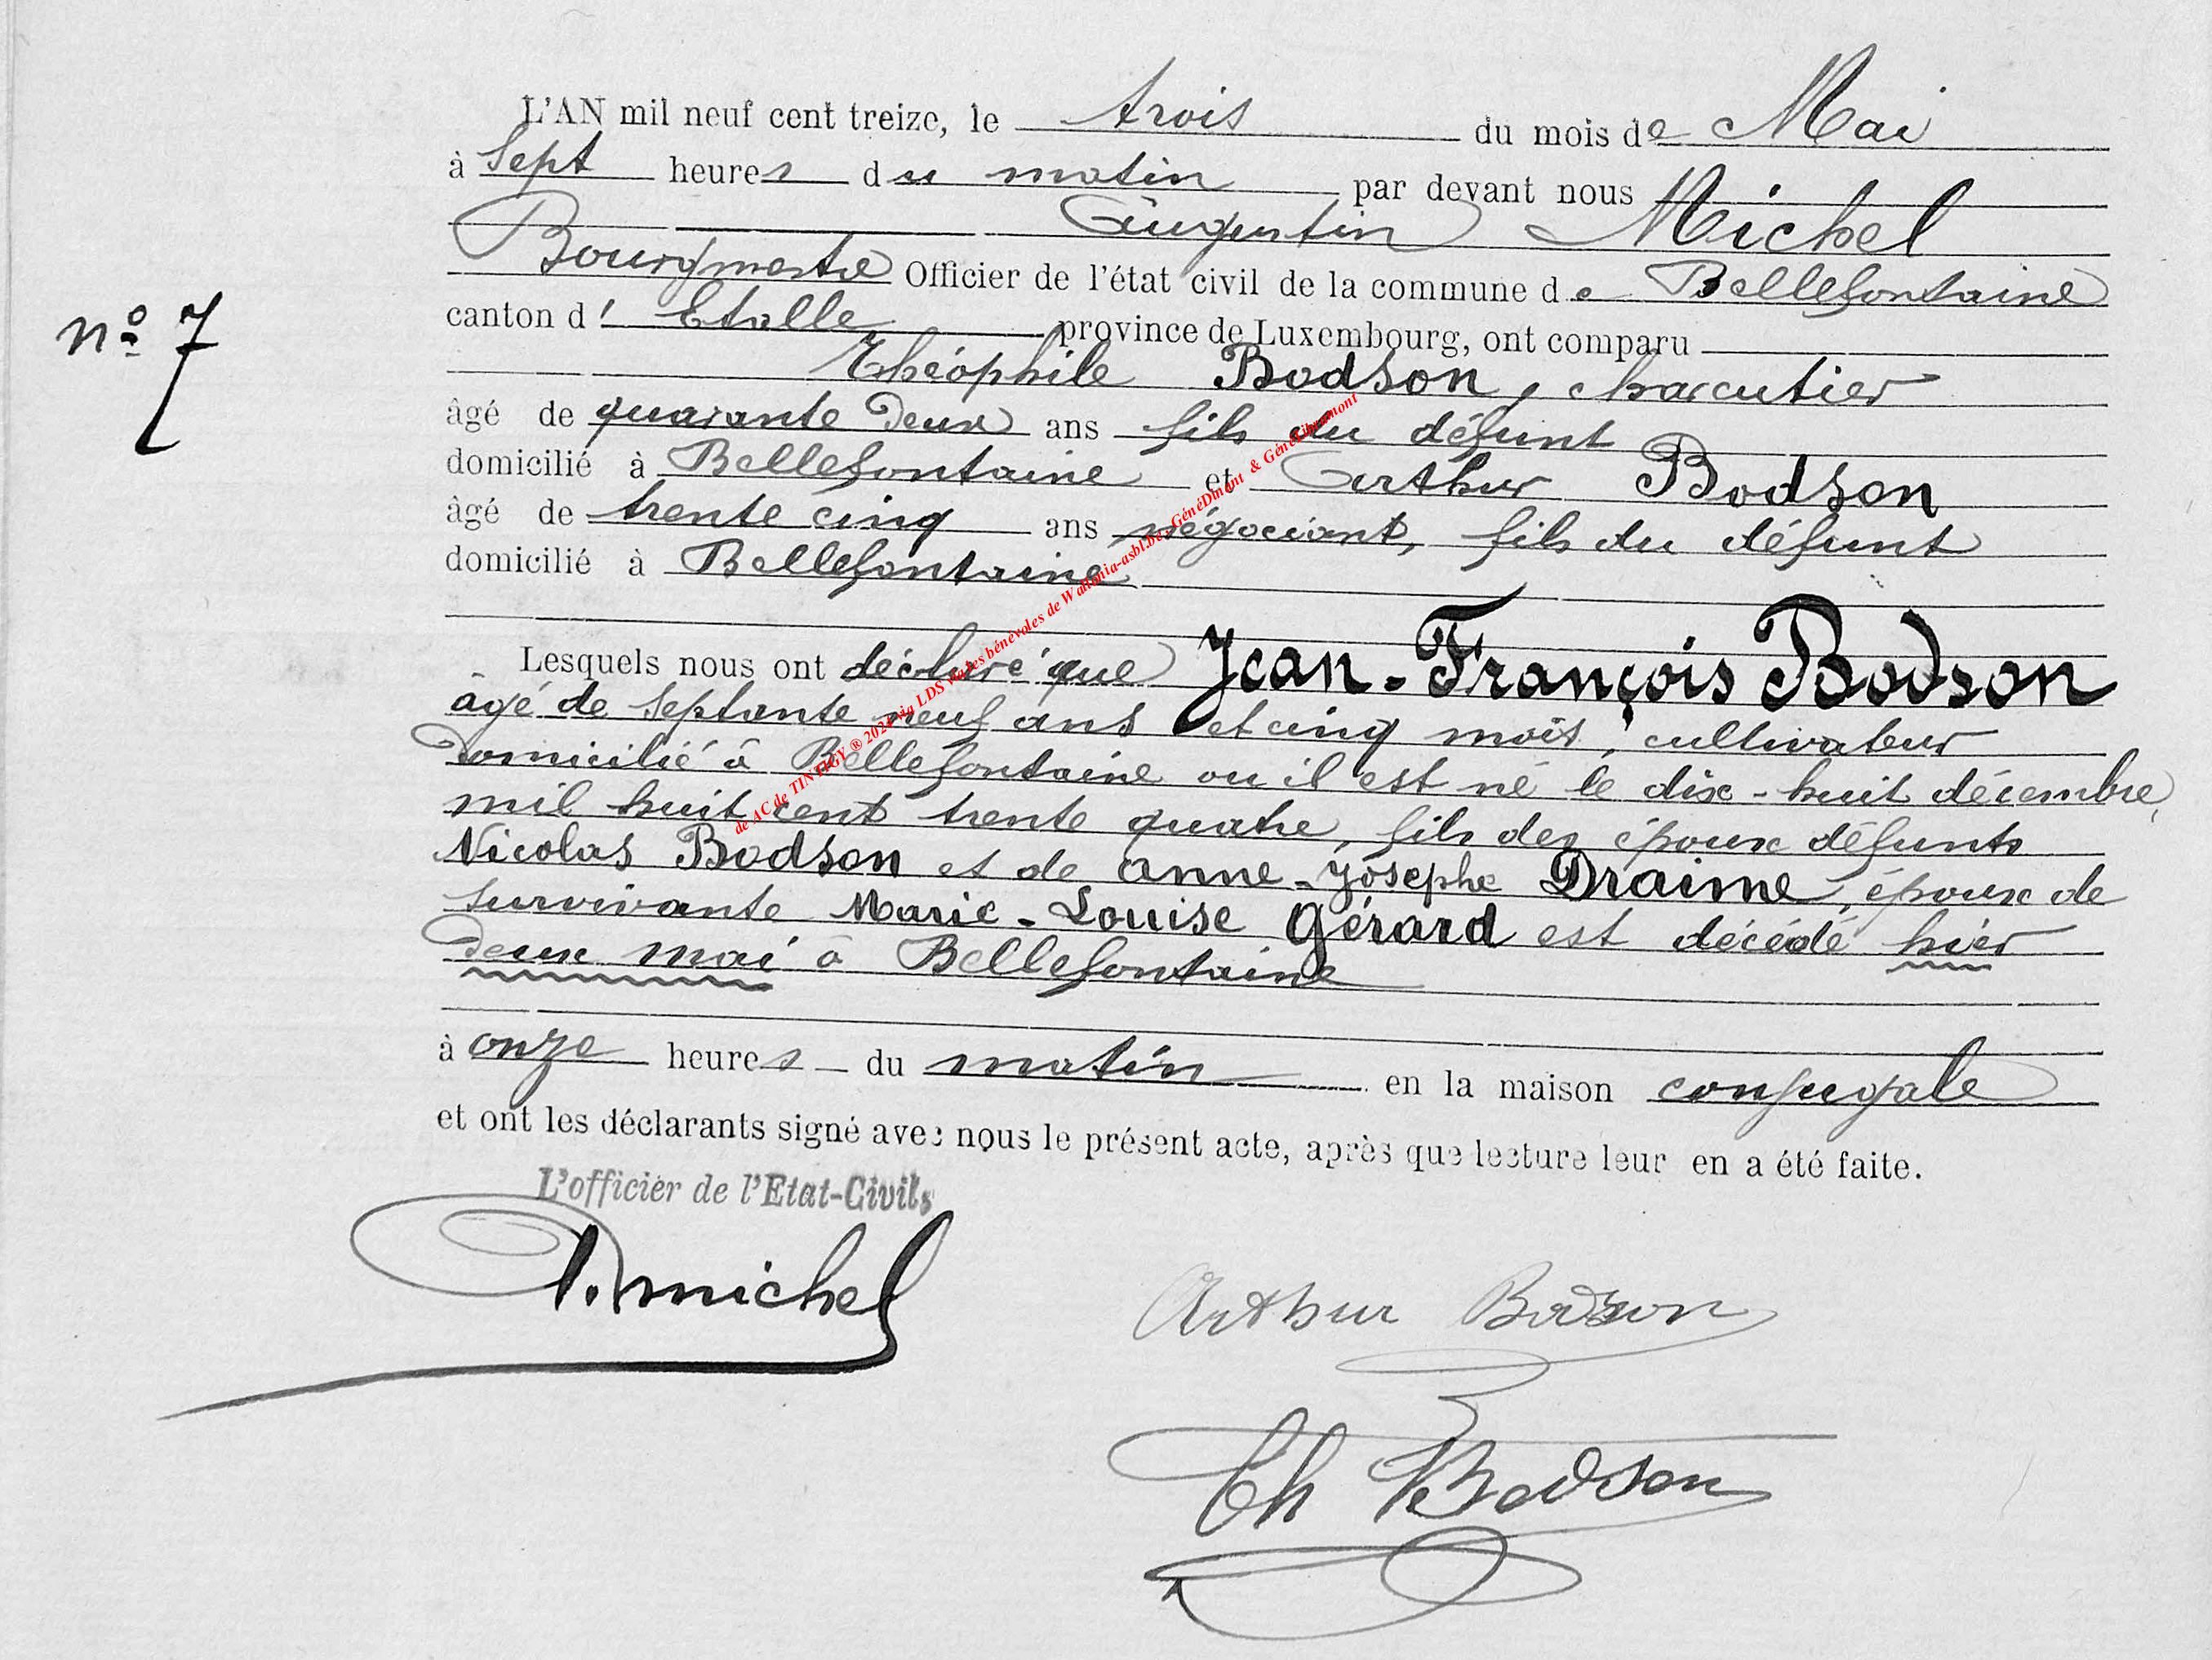 L'AN mil neuf cent treize, le trois du mois de Mai
à Sept heures du matin par devant nous
Augustin Michel
Bourgmestre Officier de l'état civil de la commune de Bellefontaine
n° 7
canton d' Etalle province de Luxembourg, ont comparu
Théophile Bodson, charcutier
âgé de quarante deux ans fils du défunt
domicilié à Bellefontaine et Arthur Bodson
âgé de trente cinq ans négociant, fils du défunt
domicilié à Bellefontaine
Lesquels nous ont déclaré que Jean-François Bodson
âgé de septante neuf ans et cinq mois, cultivateur
domicilié à Bellefontaine ou il est né le dix-huit décembre
mil huit cent trente quatre, fils des époux défunts
Nicolas Bodson et de Anne-Josephe Draime, époux de
survivante Marie-Louise Gérard est décédé hier
deux mai à Bellefontaine
à onze heures du matin en la maison conjugale
et ont les déclarants signé avec nous le présent acte, après que lecture leur en a été faite.
L'officier de l'Etat-Civil,
A. Michel
Arthur Bodson
Th Bodson
de AC de TINTIGY ® 2024 via LDS via les bénévoles de Wallonia-asbl.be, GénéDinant & GénéLibramont